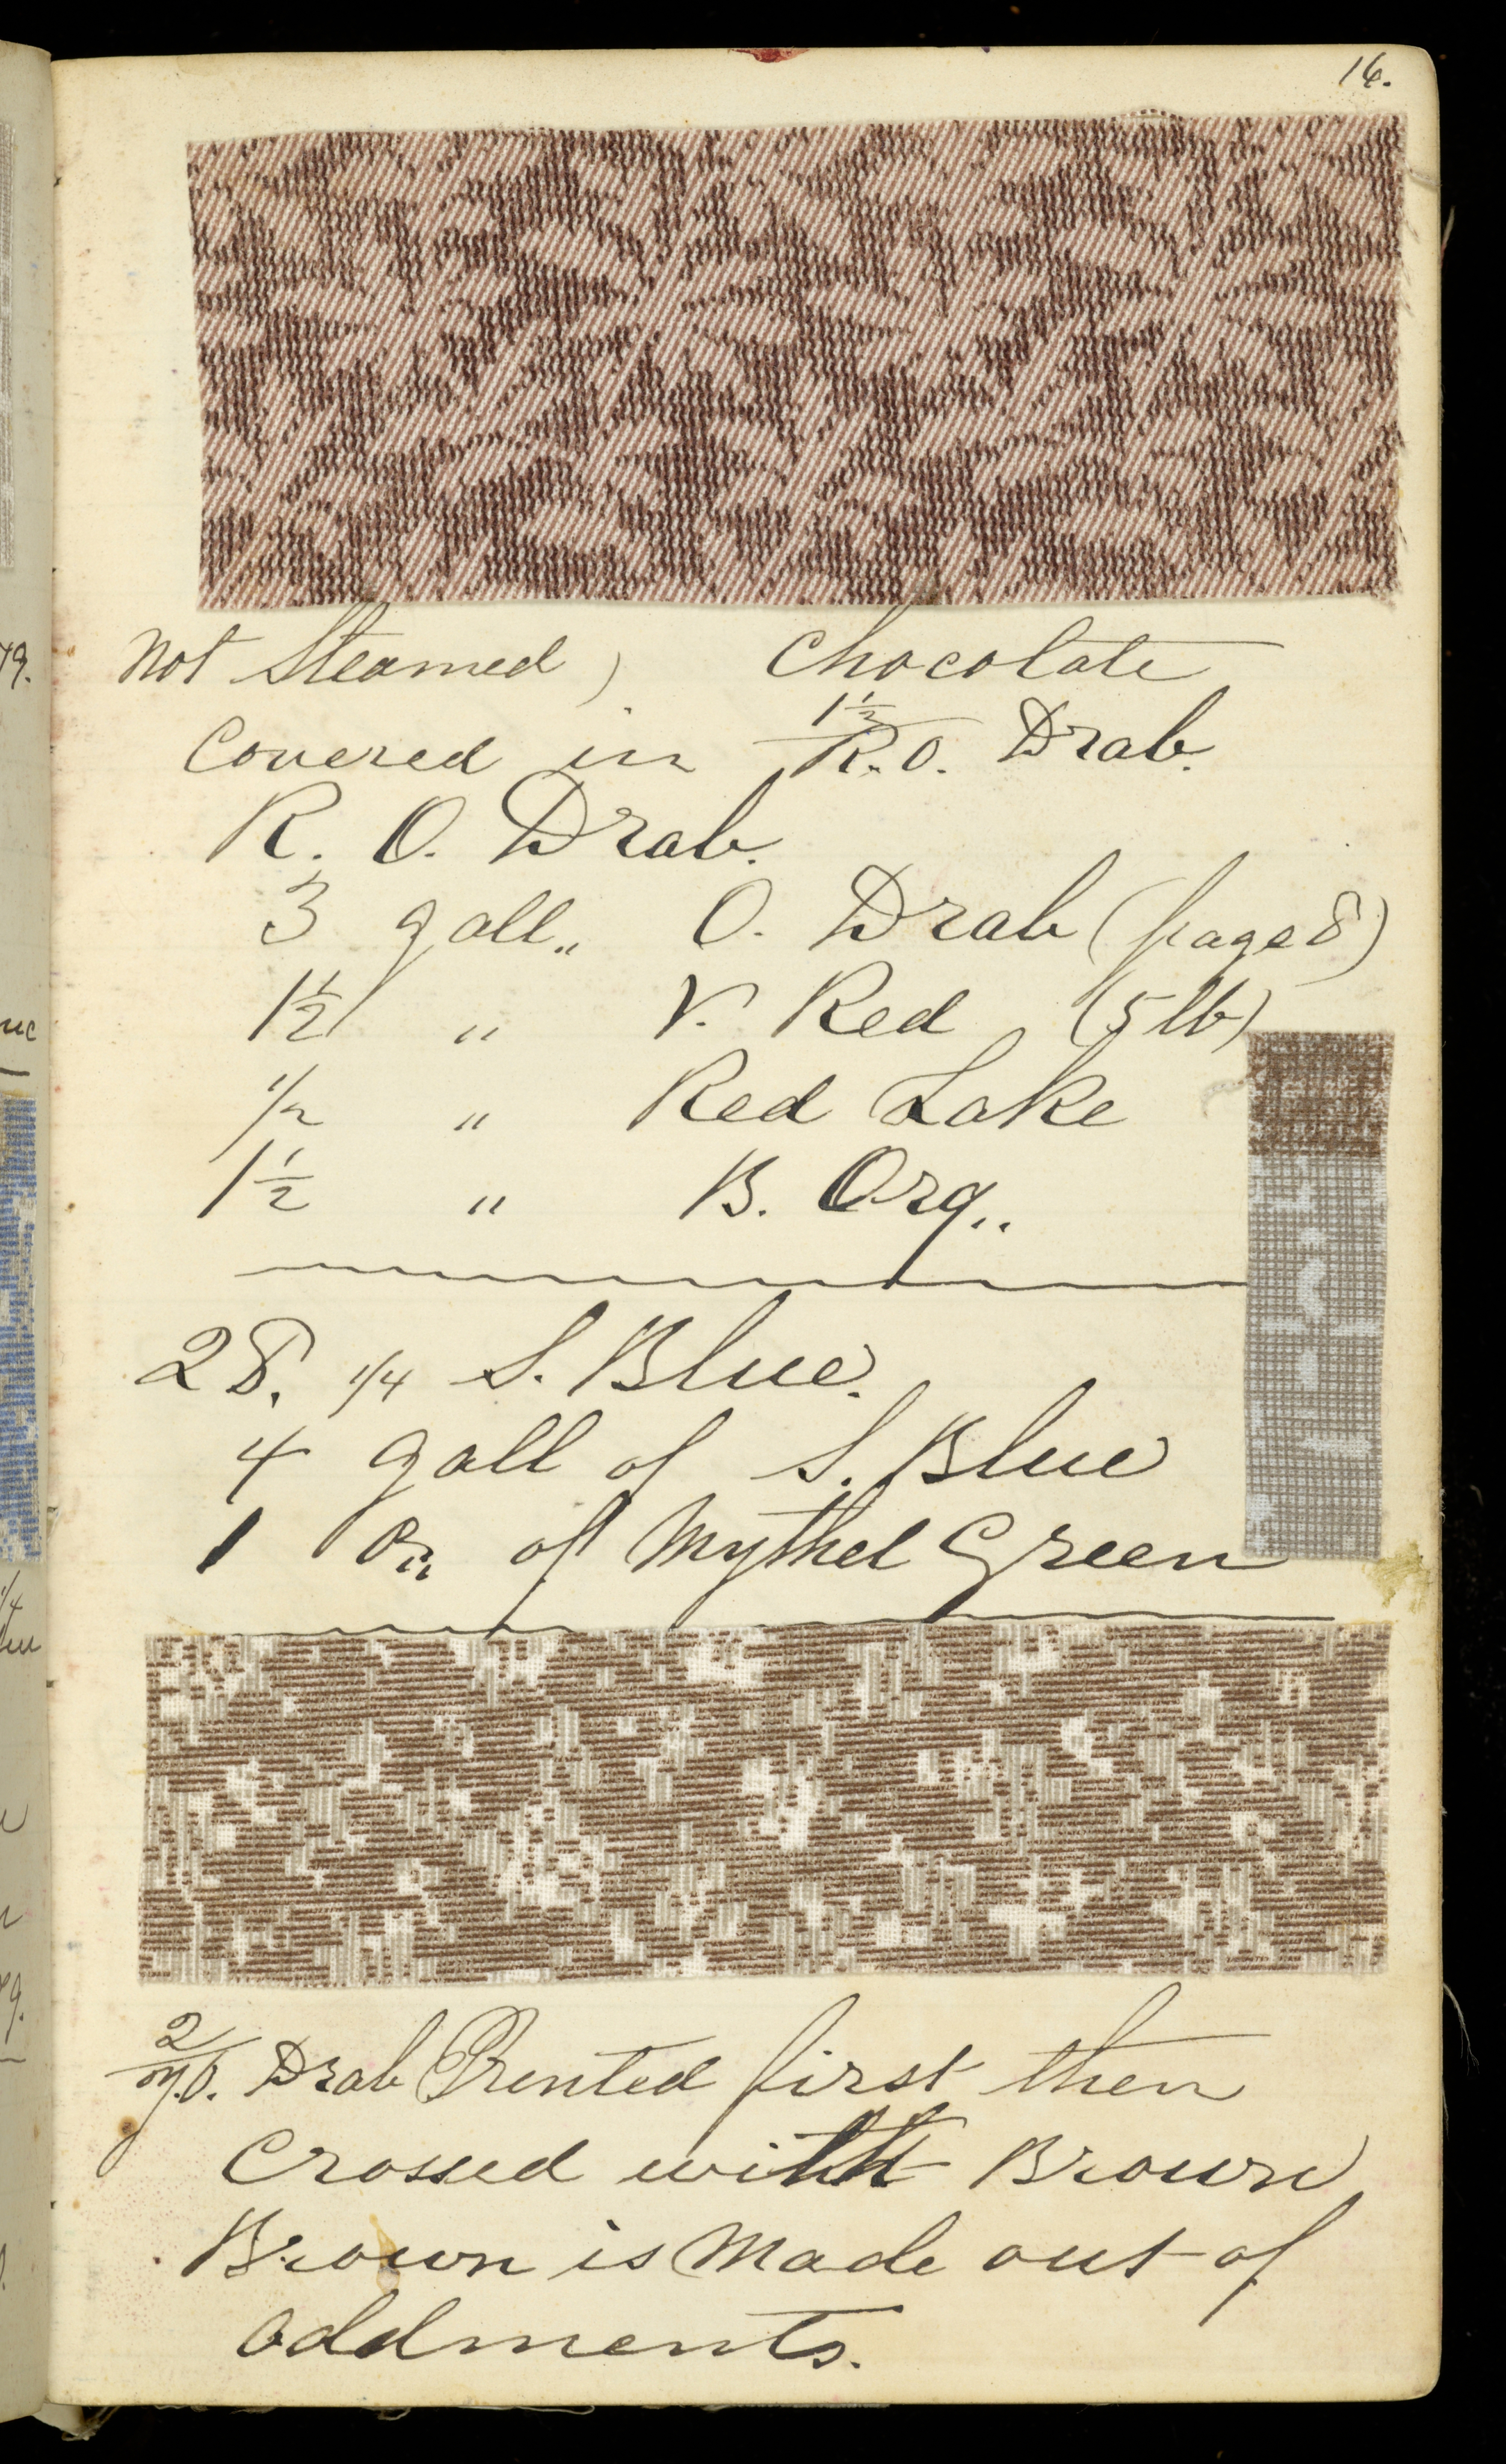 16.
Not Steamed, Chocolate
Covered in 1½ R.O. Drab.
R. O. Drab.
3 gall,, O. Drab (page 8)
1½ " V. Red (5 lb)
1/2 " Red Lake
1½ " B. Org..
28. 1/4 S. Blue.
4 gall of S. Blue
1 oz,, of Mythel Green
2/ Drab Prented first then
Crossed with Brown
Brown is Made out of
Oddments.